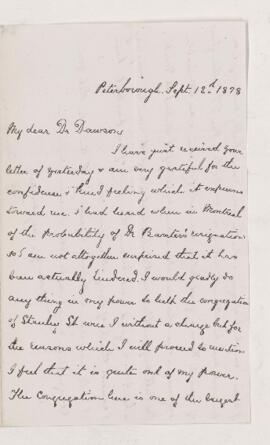 Peterborough. Sept. 12.d 1878
My dear Dr Dawson,
I have just received your
letter of yesterday & am very grateful for the
confidence & kind feeling which it expresses
toward me. I had heard when in Montreal
of the probability of Dr resignation
so I am not altogether surprised that it has
been actually tendered. I would gladly do
any thing in my power to help the congregation
of Stanley St were I without a charge but for
the reasons which I will proceed to mention
I feel that it is quite out of my power.
The Congregation here is one of the largest